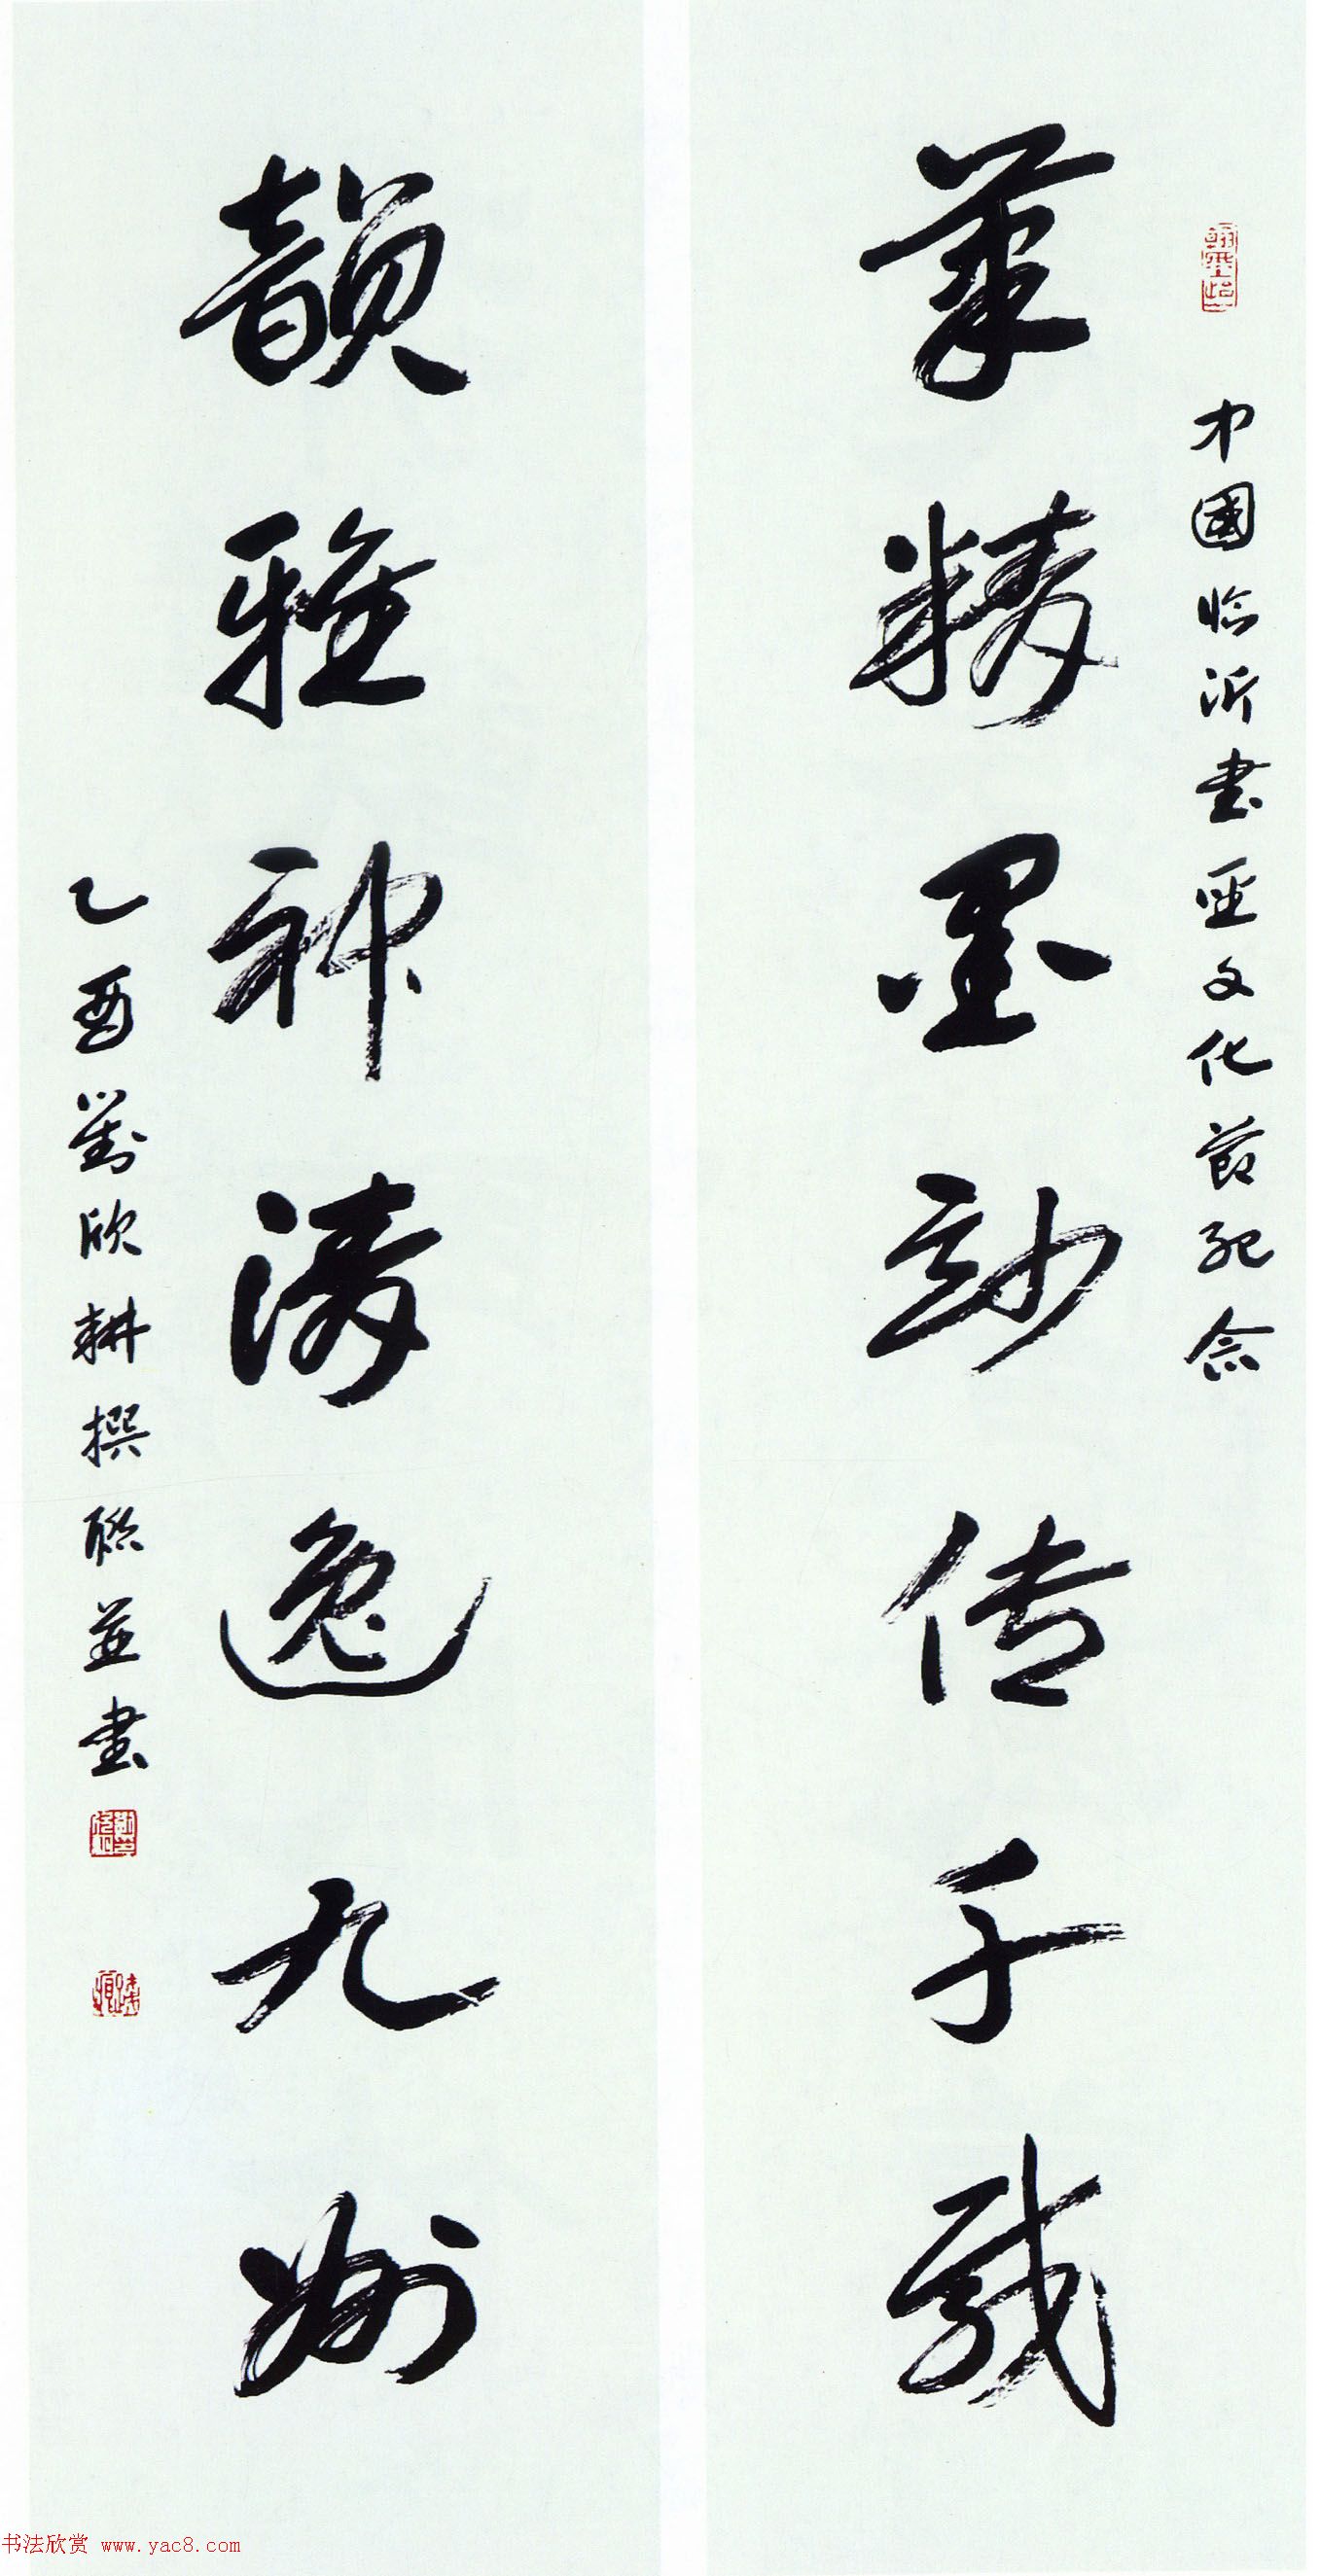 中國临沂書圣文化节纪念
筆精墨妙传千载
韻雅神清逸九州
乙酉劉欣耕撰聯並書
书法欣赏 www.yac8.com